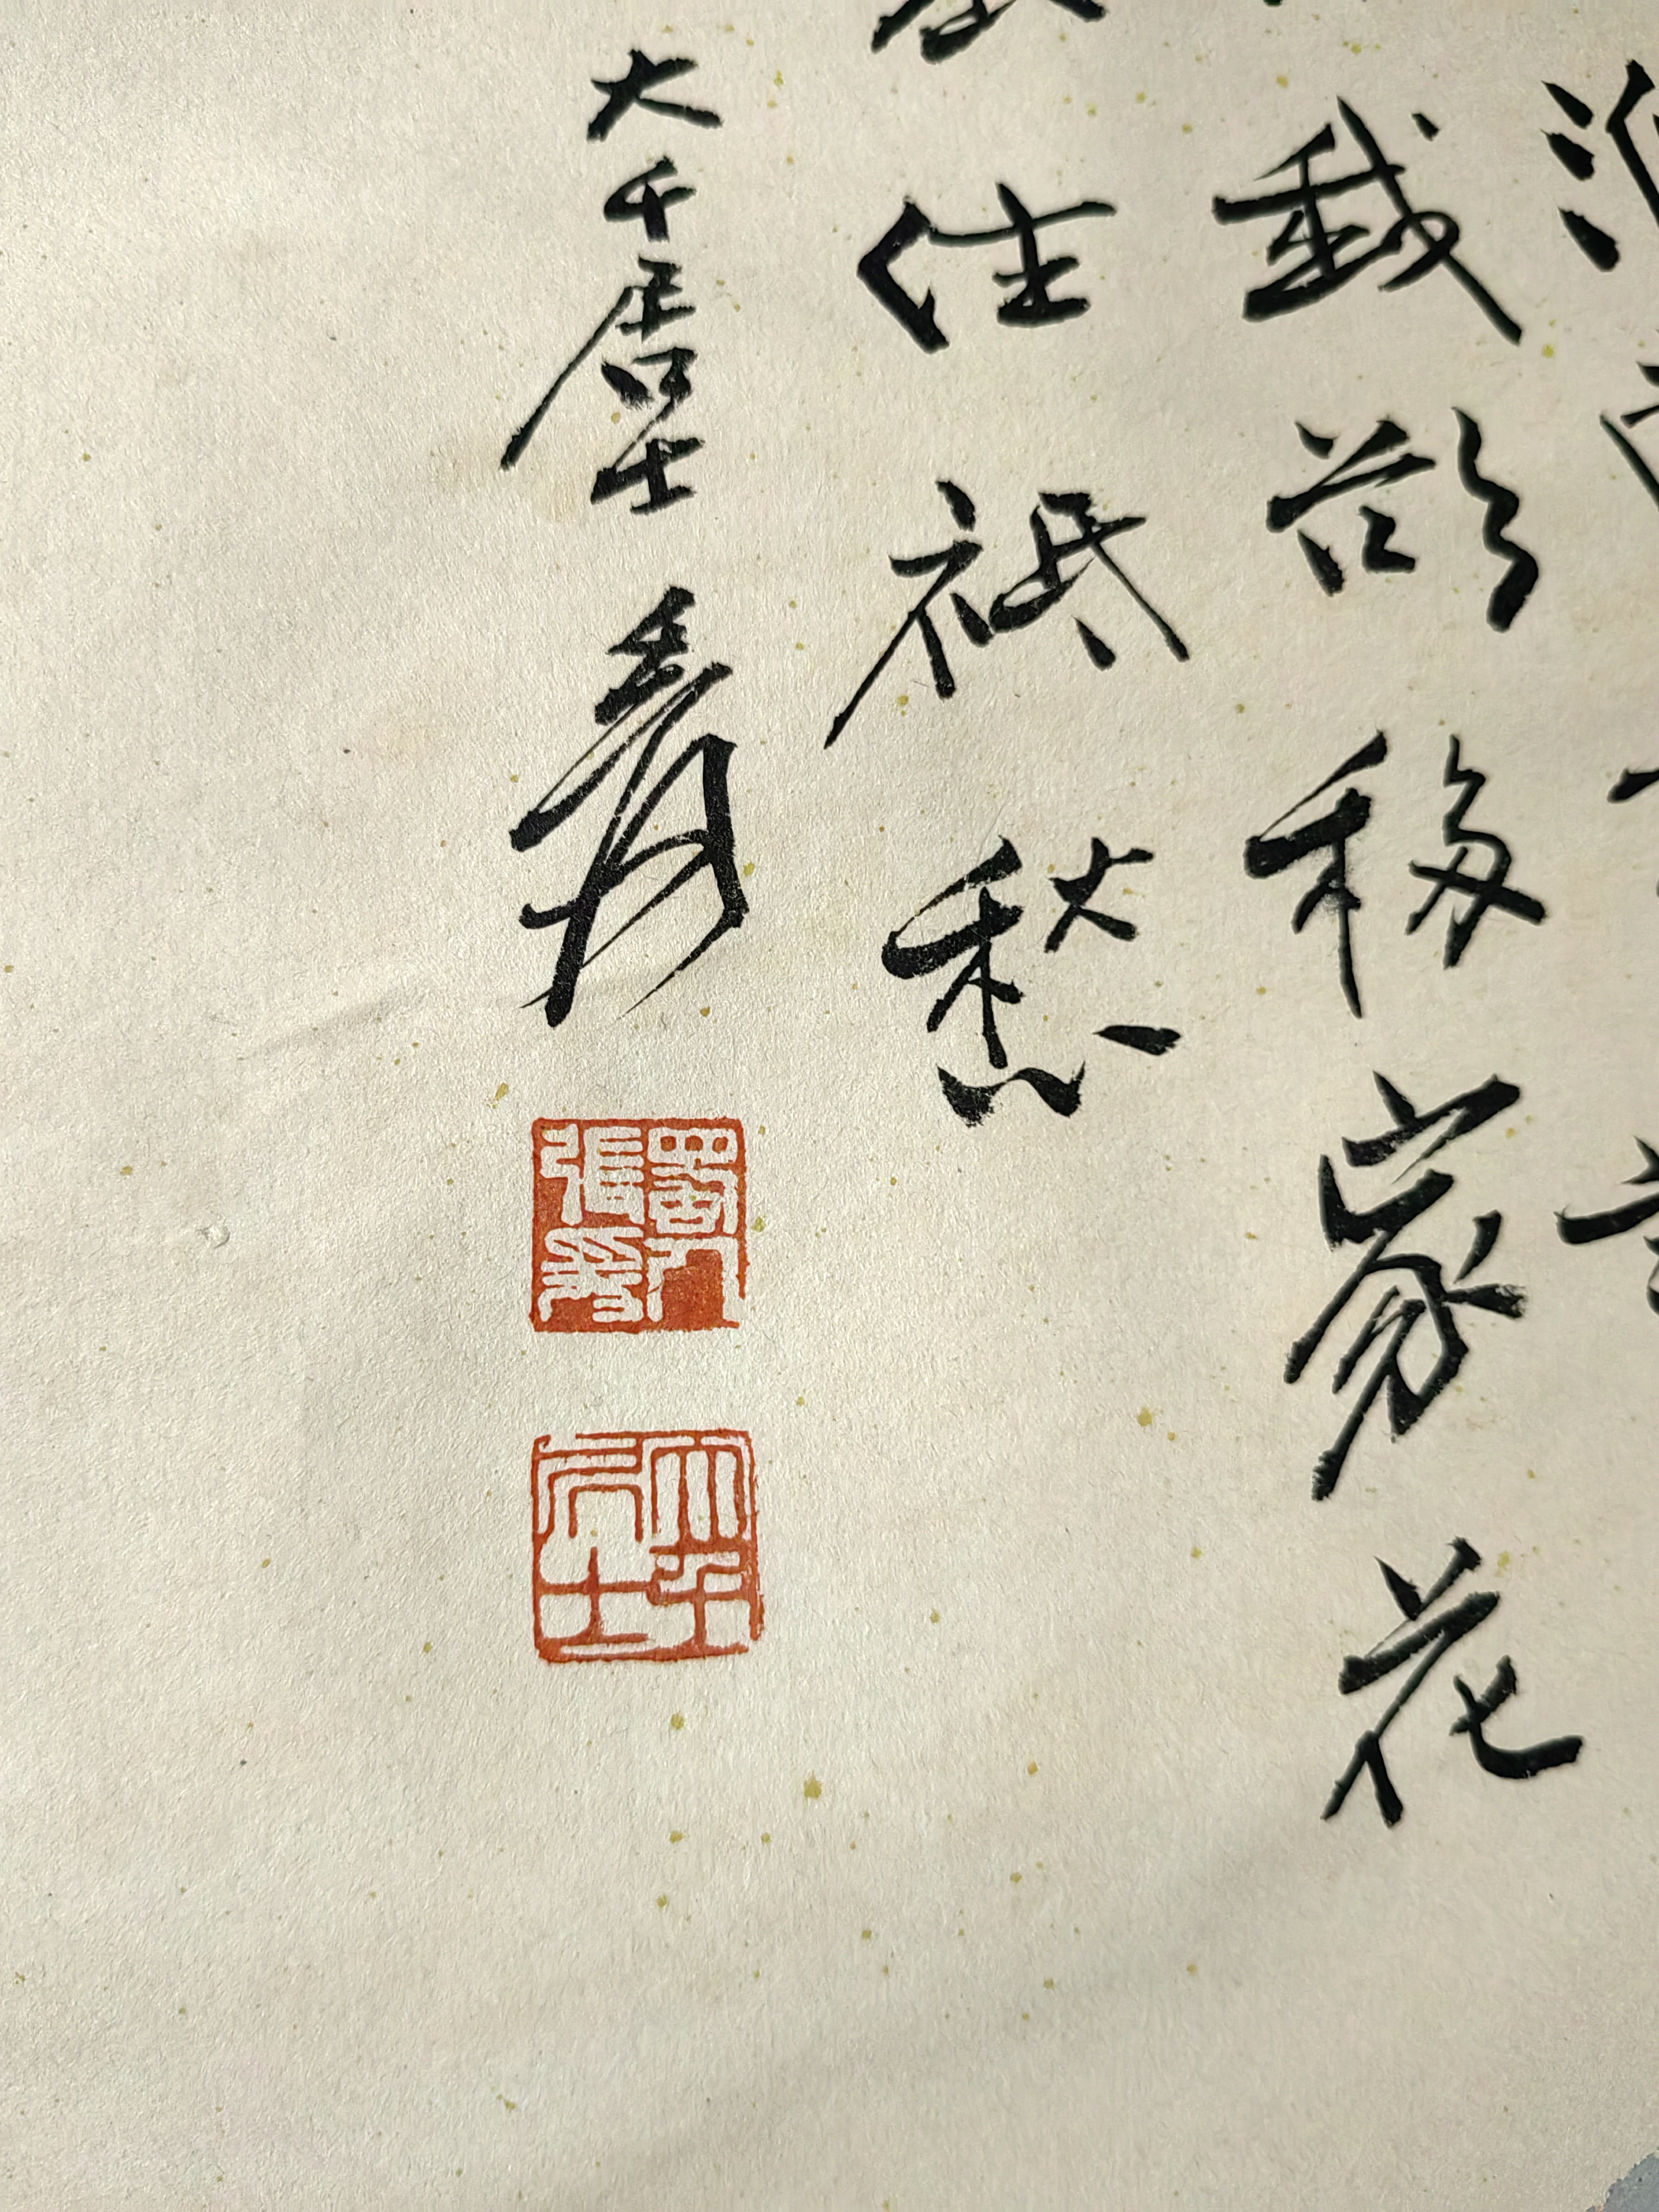 我欲移家花
住衹愁
大千居士爰
蜀人張爰
大千居士